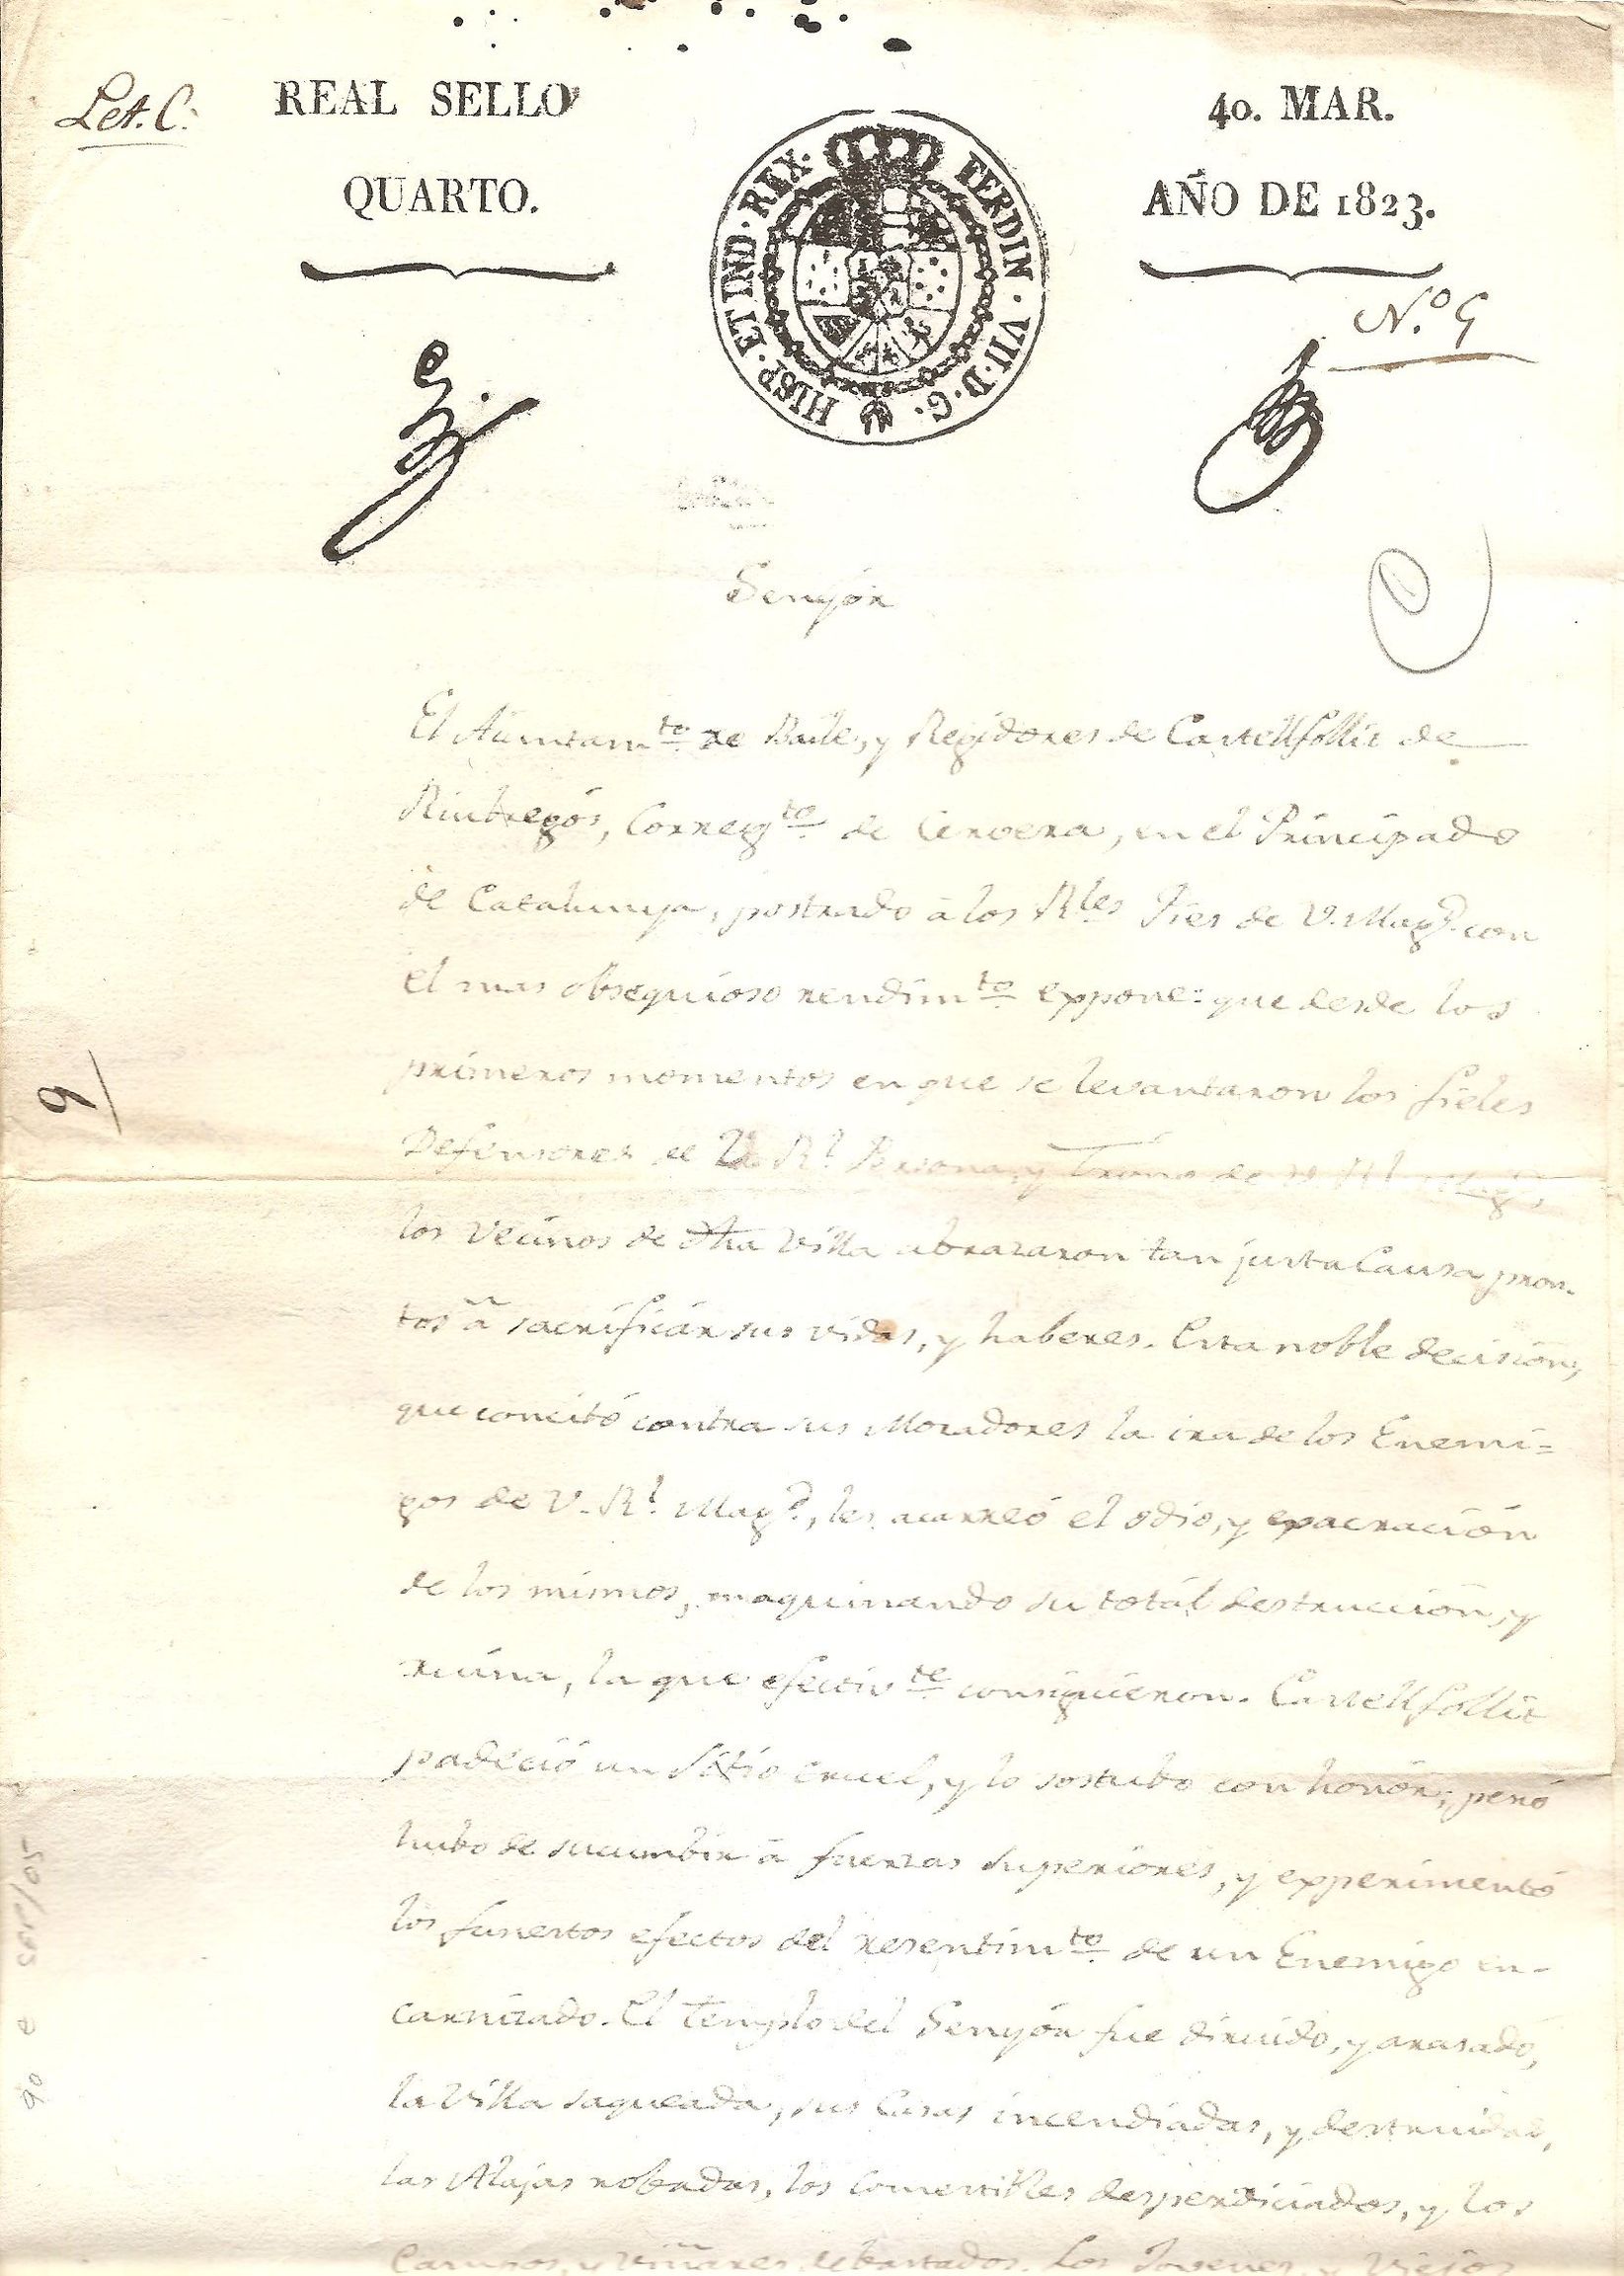 Let. C.
REAL SELLO
QUARTO.
40. MAR.
AÑO DE 1823.
FERDIN. VII. D. G. HISP. ET IND. REX.
N.º 9
Senyór
El Aiuntam.to de Baile, y Regidores de Castellfollit de
Riubregós, Correg.to de Cervera, en el Principado
de Catalunya, postrado á los R.les Pies de V. Mag.d con
el mas obsequioso rendim.to expone: que desde los
primeros momentos en que se levantaron los fieles
Defensores de la R.l Persona, y Trono de V. R.l Mag.d,
los vecinos de dha Villa abrazaron tan justa Causa pron-
tos á sacrificár sus vidas, y haberes. Esta noble decisión,
que concitó contra sus Moradores la ira de los Enemi=
gos de V. R.l Mag.d, les acarreó el odio, y expacración
de los mismos, maquinando su totál destrucción, y
ruina, la que efectiv.te consiguieron. Castellfollit
padeció un Sitio cruel, y lo sostubo con honór; peró
hubo de sucumbir á fuerzas superiores, y expperimentó
los funestos efectos del resentim.to de un Enemigo en-
carnizado. El Templo del Senyór fue diruido, y arasado,
la Villa saqueada, sus Casas incendiadas, y destruidas,
las Alajas robadas, los comestibles desperdiciados, y los
Campos, y viñares debastados. Los Jovenes, y Viejos
9
90 e ser/05